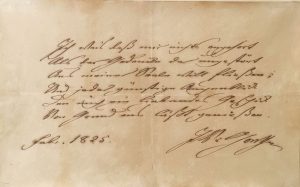 Ich weiß daß mir nichts angehört
Als der Gedanke der ungestört
Aus meiner Seele will fließen,
Und jeder günstige Augenblick
Den mich ein liebendes Geschick
Von Grund aus läßt genießen.
1825.
JWvGoethe